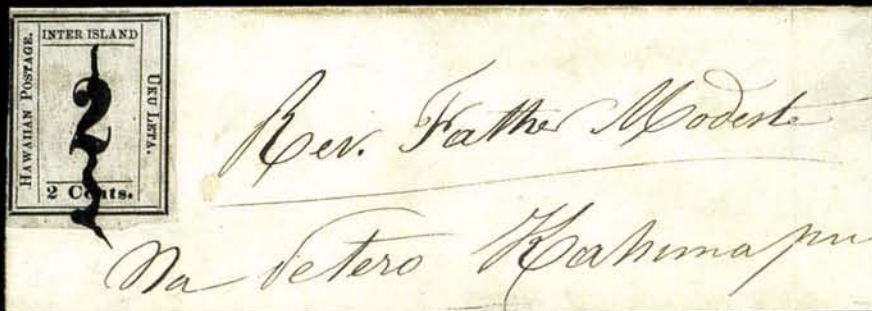 INTER ISLAND
HAWAIIAN POSTAGE.
UKU LETA.
2
2 Cents.
Rev. Father Modeste
Na Petero Kahumapuu